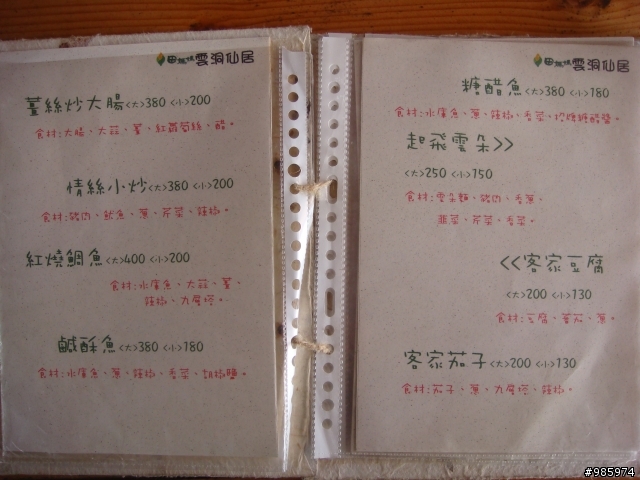 雲洞仙居
薑絲炒大腸<大>380 <小>200
食材:大腸、大蒜、薑、紅蘿蔔絲、醋。
情絲小炒<大>380 <小>200
食材:豬肉、魷魚、蔥、芹菜、辣椒。
紅燒鯛魚<大>400 <小>200
食材:水庫魚、大蒜、薑、
辣椒、九層塔。
鹹酥魚<大>380 <小>180
食材:水庫魚、蔥、辣椒、香菜、胡椒鹽。
雲洞仙居
糖醋魚<大>380 <小>180
食材:水庫魚、蔥、辣椒、香菜、招牌糖醋醬。
起飛雲朵>>
<大>250 <小>150
食材:雲朵麵、豬肉、香蔥、
韭菜、芹菜、香菜。
<<客家豆腐
<大>200 <小>130
食材:豆腐、蕃茄、蔥。
客家茄子<大>200 <小>130
食材:茄子、蔥、九層塔、辣椒。
#985974